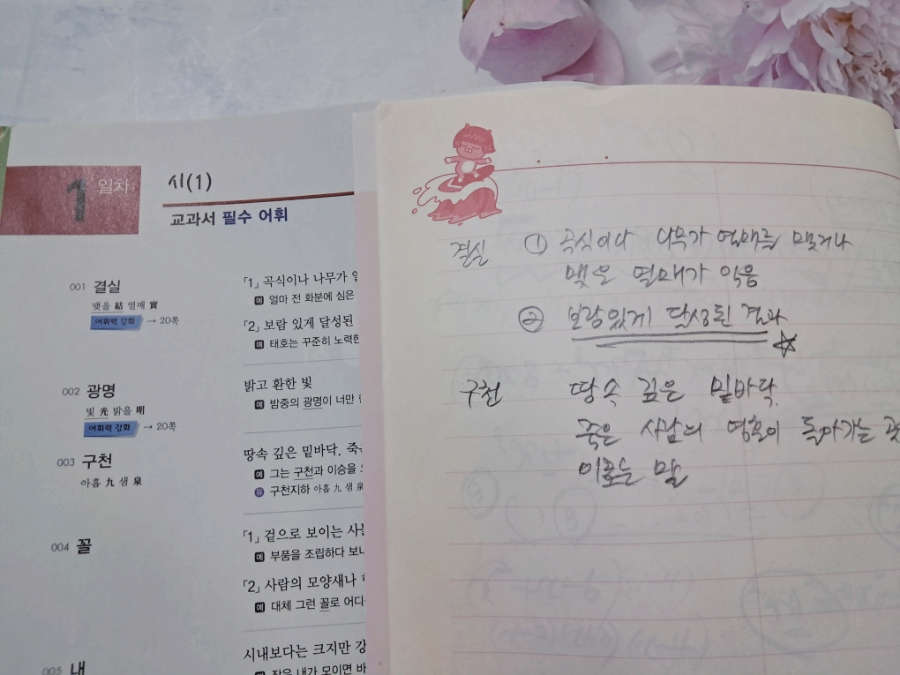 1 일차
시(1)
교과서 필수 어휘
001 결실
맺을 結 열매 實
어휘력 강화 → 20쪽
「1」 곡식이나 나무가
예 얼마 전 화분에 심은
「2」 보람 있게 달성된
예 태호는 꾸준히 노력한
002 광명
빛 光 밝을 明
어휘력 강화 → 20쪽
밝고 환한 빛
예 밤중의 광명이 너만
003 구천
아홉 九 샘 泉
땅속 깊은 밑바닥. 죽은
예 그는 구천과 이승을
유 구천지하 아홉 九 샘 泉
004 꼴
「1」 겉으로 보이는 사물
예 부품을 조립하다 보니
「2」 사람의 모양새나
예 대체 그런 꼴로 어디
005 내
시내보다는 크지만 강
예 작은 내가 모이면 바
결실 ① 곡식이나 나무가 열매를 맺거나
맺은 열매가 익음
② 보람있게 달성된 결과
구천 땅속 깊은 밑바닥.
죽은 사람의 영혼이 돌아가는 곳
이르는 말